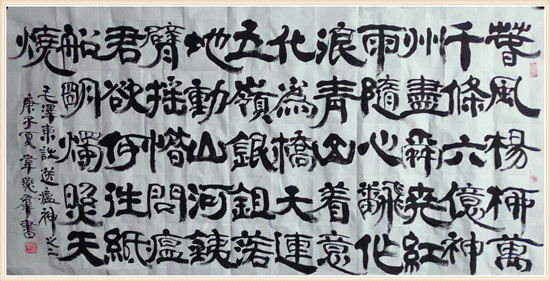 萅風楊柳萬
千條六億神
州盡舜堯紅
雨隨心飜作
浪青山着意
化為橋天連
五嶺銀鉏落
地動山河鐵
臂搖借問瘟
君欲何往紙
船朙燭照天
燒
毛澤東詩送瘟神之二
庚子夏書